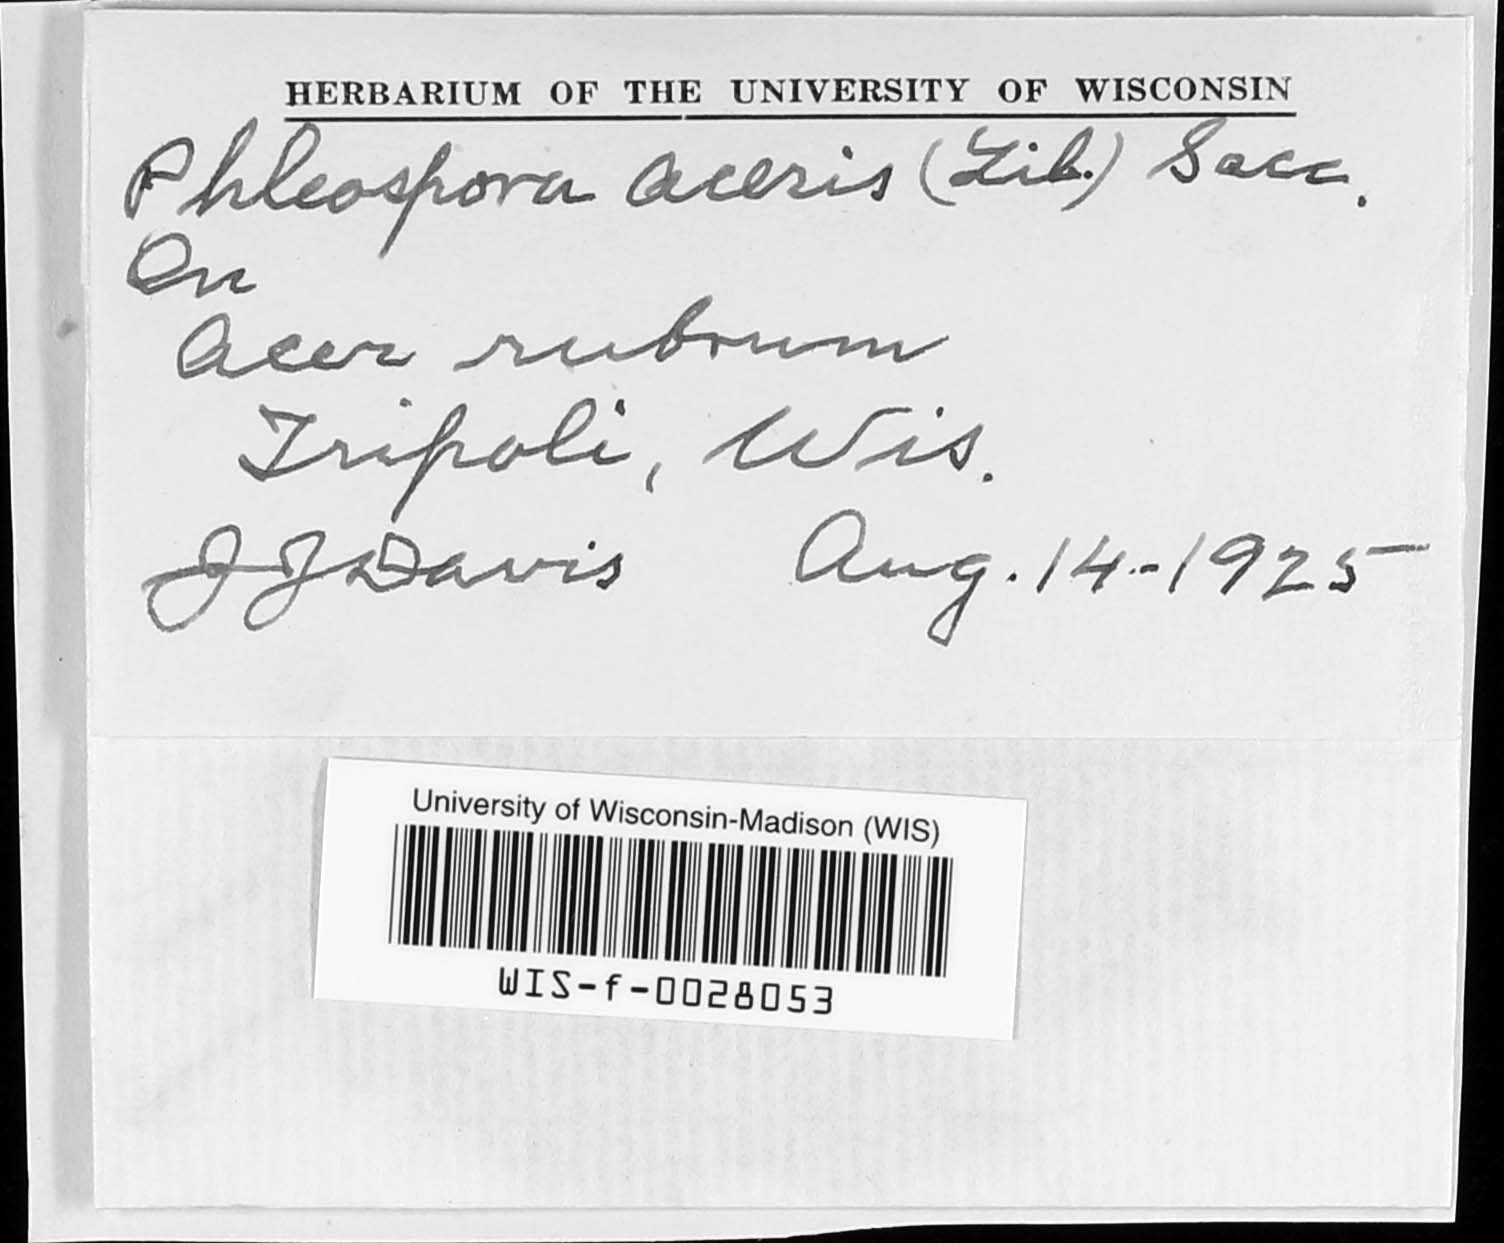 HERBARIUM OF THE UNIVERSITY OF WISCONSIN
Phleospora aceris (Lib.) Sacc.
On
Acer rubrum
Tripoli, Wis.
J J Davis Aug. 14-1925
University of Wisconsin-Madison (WIS)
WIS-f-0028053